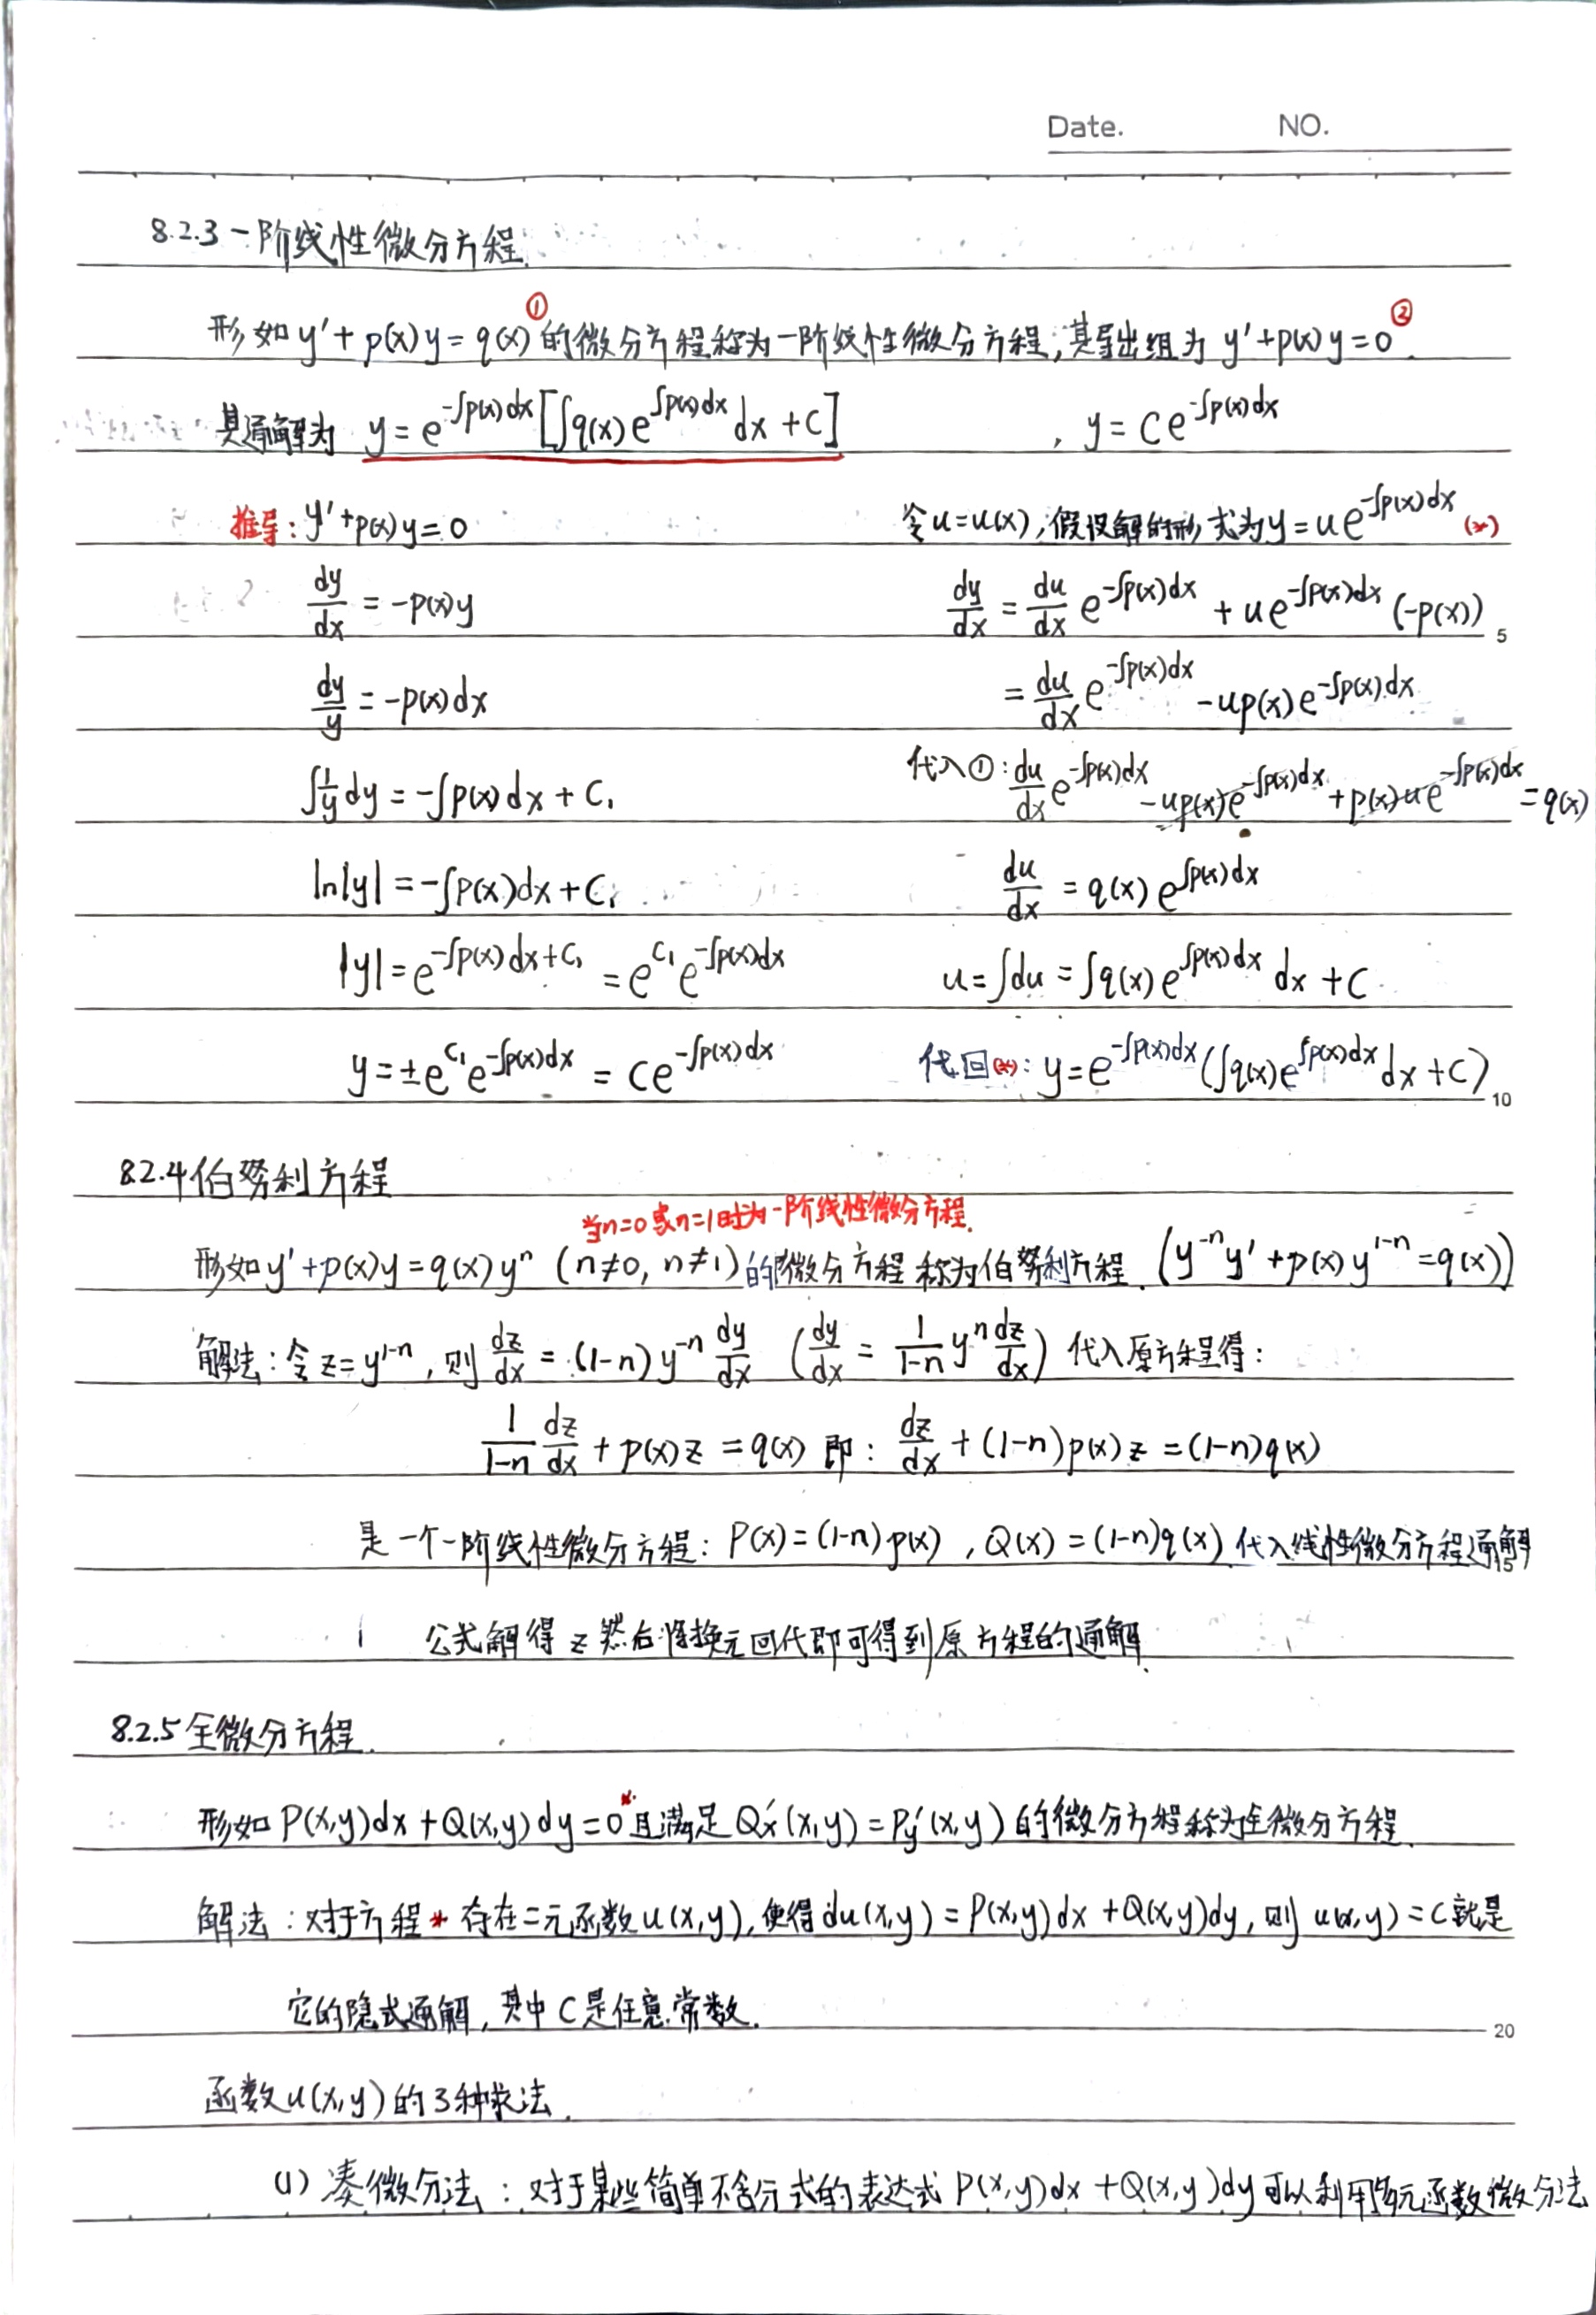 Date. NO.
8.2.3 一阶线性微分方程.
形如 y′+p(x)y=q(x)① 的微分方程称为一阶线性微分方程,其导出组为 y′+p(x)y=0②.
其通解为 y=e^{-∫p(x)dx}[∫q(x)e^{∫p(x)dx}dx+C] , y=Ce^{-∫p(x)dx}
推导: y′+p(x)y=0
dy/dx = -p(x)y
dy/y = -p(x)dx
∫1/y dy = -∫p(x)dx+C₁
ln|y| = -∫p(x)dx+C₁
|y| = e^{-∫p(x)dx+C₁} = e^{C₁}e^{-∫p(x)dx}
y = ±e^{C₁}e^{-∫p(x)dx} = Ce^{-∫p(x)dx}
令u=u(x),假设解的形式为y=ue^{-∫p(x)dx} (*)
dy/dx = du/dx e^{-∫p(x)dx} + ue^{-∫p(x)dx}(-p(x))
5
= du/dx e^{-∫p(x)dx} - up(x)e^{-∫p(x)dx}
代入①: du/dx e^{-∫p(x)dx} - up(x)e^{-∫p(x)dx} + p(x)ue^{-∫p(x)dx} = q(x)
du/dx = q(x)e^{∫p(x)dx}
u = ∫du = ∫q(x)e^{∫p(x)dx}dx+C
代回(*): y=e^{-∫p(x)dx}(∫q(x)e^{∫p(x)dx}dx+C)
10
8.2.4 伯努利方程
当n=0或n=1时为一阶线性微分方程.
形如y′+p(x)y=q(x)yⁿ (n≠0, n≠1)的微分方程称为伯努利方程. (y⁻ⁿy′+p(x)y¹⁻ⁿ=q(x))
解法:令z=y¹⁻ⁿ,则 dz/dx = (1-n)y⁻ⁿ dy/dx (dy/dx = 1/(1-n) yⁿ dz/dx) 代入原方程得:
1/(1-n) dz/dx + p(x)z = q(x) 即: dz/dx + (1-n)p(x)z = (1-n)q(x)
是一个一阶线性微分方程: P(x)=(1-n)p(x) , Q(x)=(1-n)q(x) 代入线性微分方程通解
15
公式解得z然后将换元回代即可得到原方程的通解.
8.2.5 全微分方程.
形如 P(x,y)dx+Q(x,y)dy=0* 且满足 Qx′(x,y)=Py′(x,y) 的微分方程称为全微分方程.
解法:对于方程* 存在二元函数u(x,y),使得du(x,y)=P(x,y)dx+Q(x,y)dy,则 u(x,y)=C就是
它的隐式通解,其中C是任意常数.
20
函数u(x,y)的3种求法.
(1) 凑微分法:对于某些简单不含分式的表达式 P(x,y)dx+Q(x,y)dy可以利用多元函数微分法